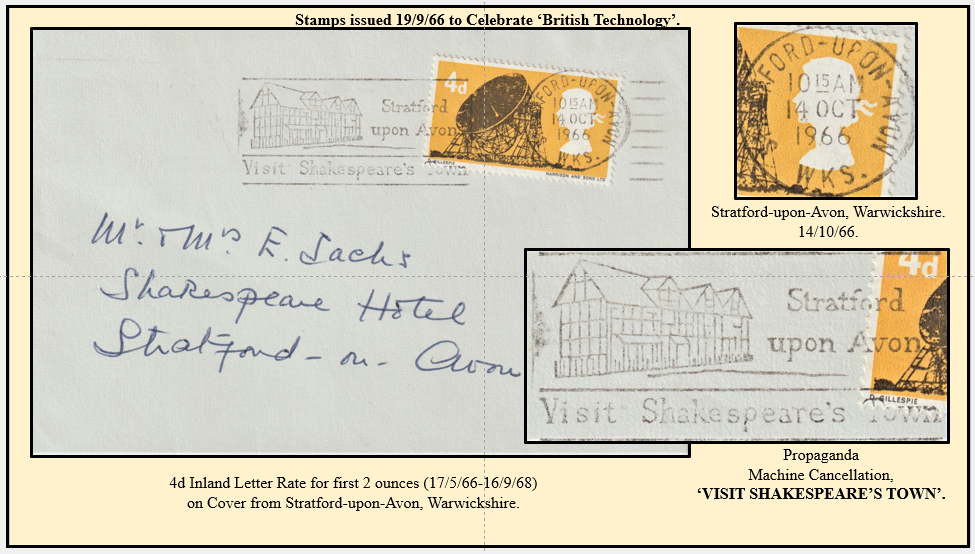 Stamps issued 19/9/66 to Celebrate ‘British Technology’.
4d
Stratford
upon Avon
Visit Shakespeare's Town
FORD-UPON-AVON
10 15 AM
14 OCT
1966
WKS.
GILLESPIE
HARRISON AND SONS LTD
Mr. & Mrs E. Sachs
Shakespeare Hotel
Stratford-on-Avon
FORD-UPON-AVON
10 15 AM
14 OCT
1966
WKS.
Stratford-upon-Avon, Warwickshire.
14/10/66.
4d
Stratford
upon Avon
GILLESPIE
Visit Shakespeare's Town
4d Inland Letter Rate for first 2 ounces (17/5/66-16/9/68)
on Cover from Stratford-upon-Avon, Warwickshire.
Propaganda
Machine Cancellation,
‘VISIT SHAKESPEARE’S TOWN’.